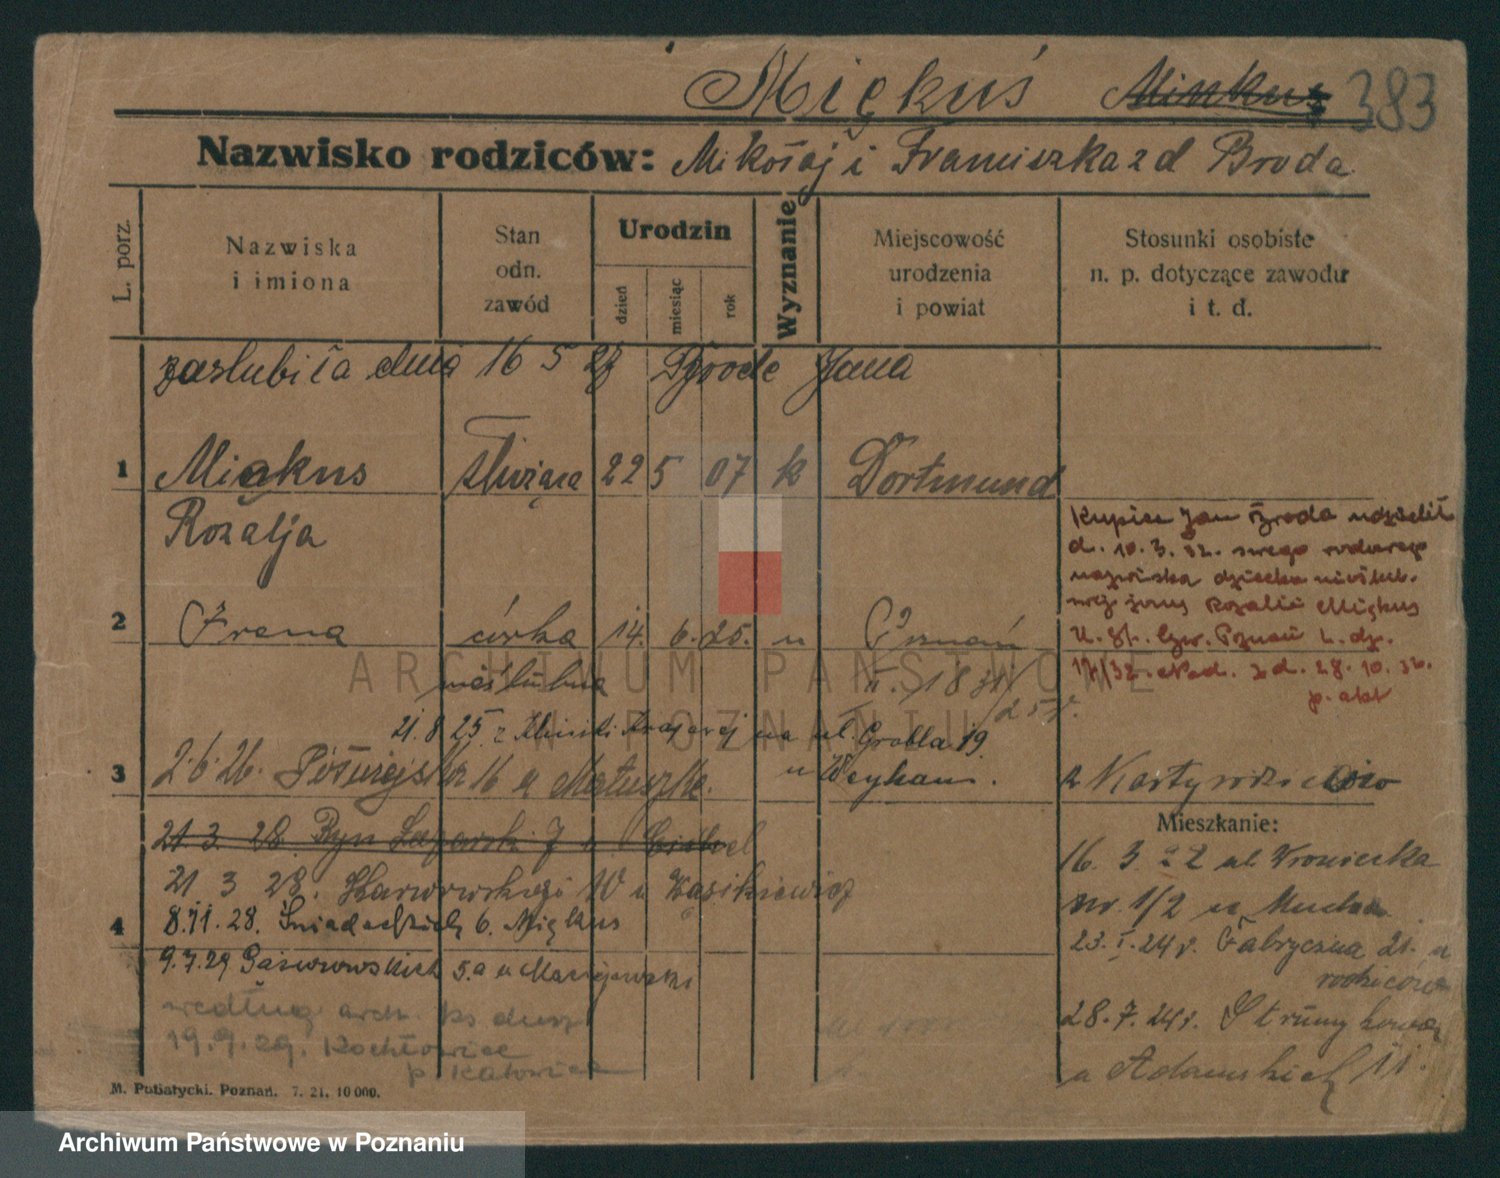 Miękuś Minkus 383
Nazwisko rodziców: Mikołaj i Franciszka z d Broda
L. porz.
Nazwiska
i imiona
Stan
odn.
zawód
Urodzin
dzień
miesiąc
rok
Wyznanie
Miejscowość
urodzenia
i powiat
Stosunki osobiste
n. p. dotyczące zawodu
i t. d.
zaślubiła dnia 16 5 27 Brode Jana
1 Miękus służąca 22 5 07 k Dortmund
Rozalja
Kupiec Jan Broda udzielił
d. 10. 3. 32. swego rodowego
nazwiska dziecku nieślub.
swej żony Rozalii Miękus
U. St. Cyw. Poznań L. dz.
17/32. z d. 28. 10. 32.
p. akt
2 Irena córka 14. 6. 25. u Poznań
nieślubna
21. 8 25 z na ul. Grobla 19
u Weyhan.
3 2.6.26. Półwiejska 16 u Matuszk.
z Karty rodziców
Mieszkanie:
21. 3. 28. Ryn Łazarski 7 u
21 3 28. 10 u Wasikiewicz
4 8.11.28. Śniadeckich 6. Miękus
9.7.29 Gąsiorowskich 5.a u Maciejewski
według arch. ks dusz
19.9.29. Kochłowice
p. Katowice
16. 3. 22 ul Wroniecka
nr. 1/2 u Mucha
23. I. 24 r. Fabryczna 21. u
rodziców
28. 7. 24 r. Strumykowa
u Adamskich 11.
M. Putiatycki. Poznań. 7. 21. 10 000.
ARCHIWUM PAŃSTWOWE
W POZNANIU
Archiwum Państwowe w Poznaniu